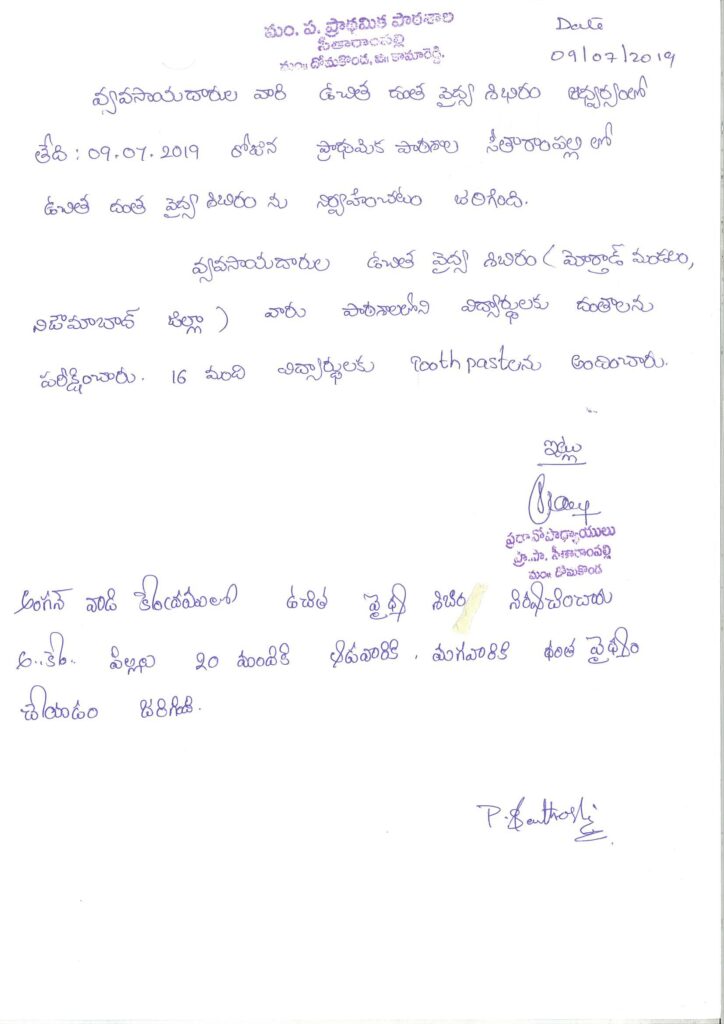 మం. ప. ప్రాథమిక పాఠశాల
సీతారాంపల్లి
మం॥ దోమకొండ, జి॥ కామారెడ్డి.
Date
09/07/2019
వ్యవసాయదారుల వారి ఉచిత దంత వైద్య శిభిరం ఆధ్వర్యంలో
తేది : 09.07.2019 రోజున ప్రాథమిక పాఠశాల సీతారాంపల్లి లో
ఉచిత దంత వైద్య శిబిరం ను నిర్వహించటం జరిగింది.
వ్యవసాయదారుల ఉచిత వైద్య శిబిరం ( మోర్తాడ్ మండలం,
నిజామాబాద్ జిల్లా ) వారు పాఠశాలలోని విద్యార్థులకు దంతాలను
పరీక్షించారు. 16 మంది విద్యార్థులకు Tooth pasteలను అందించారు.
ఇట్లు
ప్రధానోపాధ్యాయులు
ప్రా..పా. సీతారాంపల్లి
మం॥ దోమకొండ
అంగన్ వాడి కేంద్రములో ఉచిత వైద్య శిబిర
అ..కేం.. పిల్లలు 20 మందికి ఆడవారికి, మగవారికి ధంత వైధ్యం
చేయడం జరిగింది.